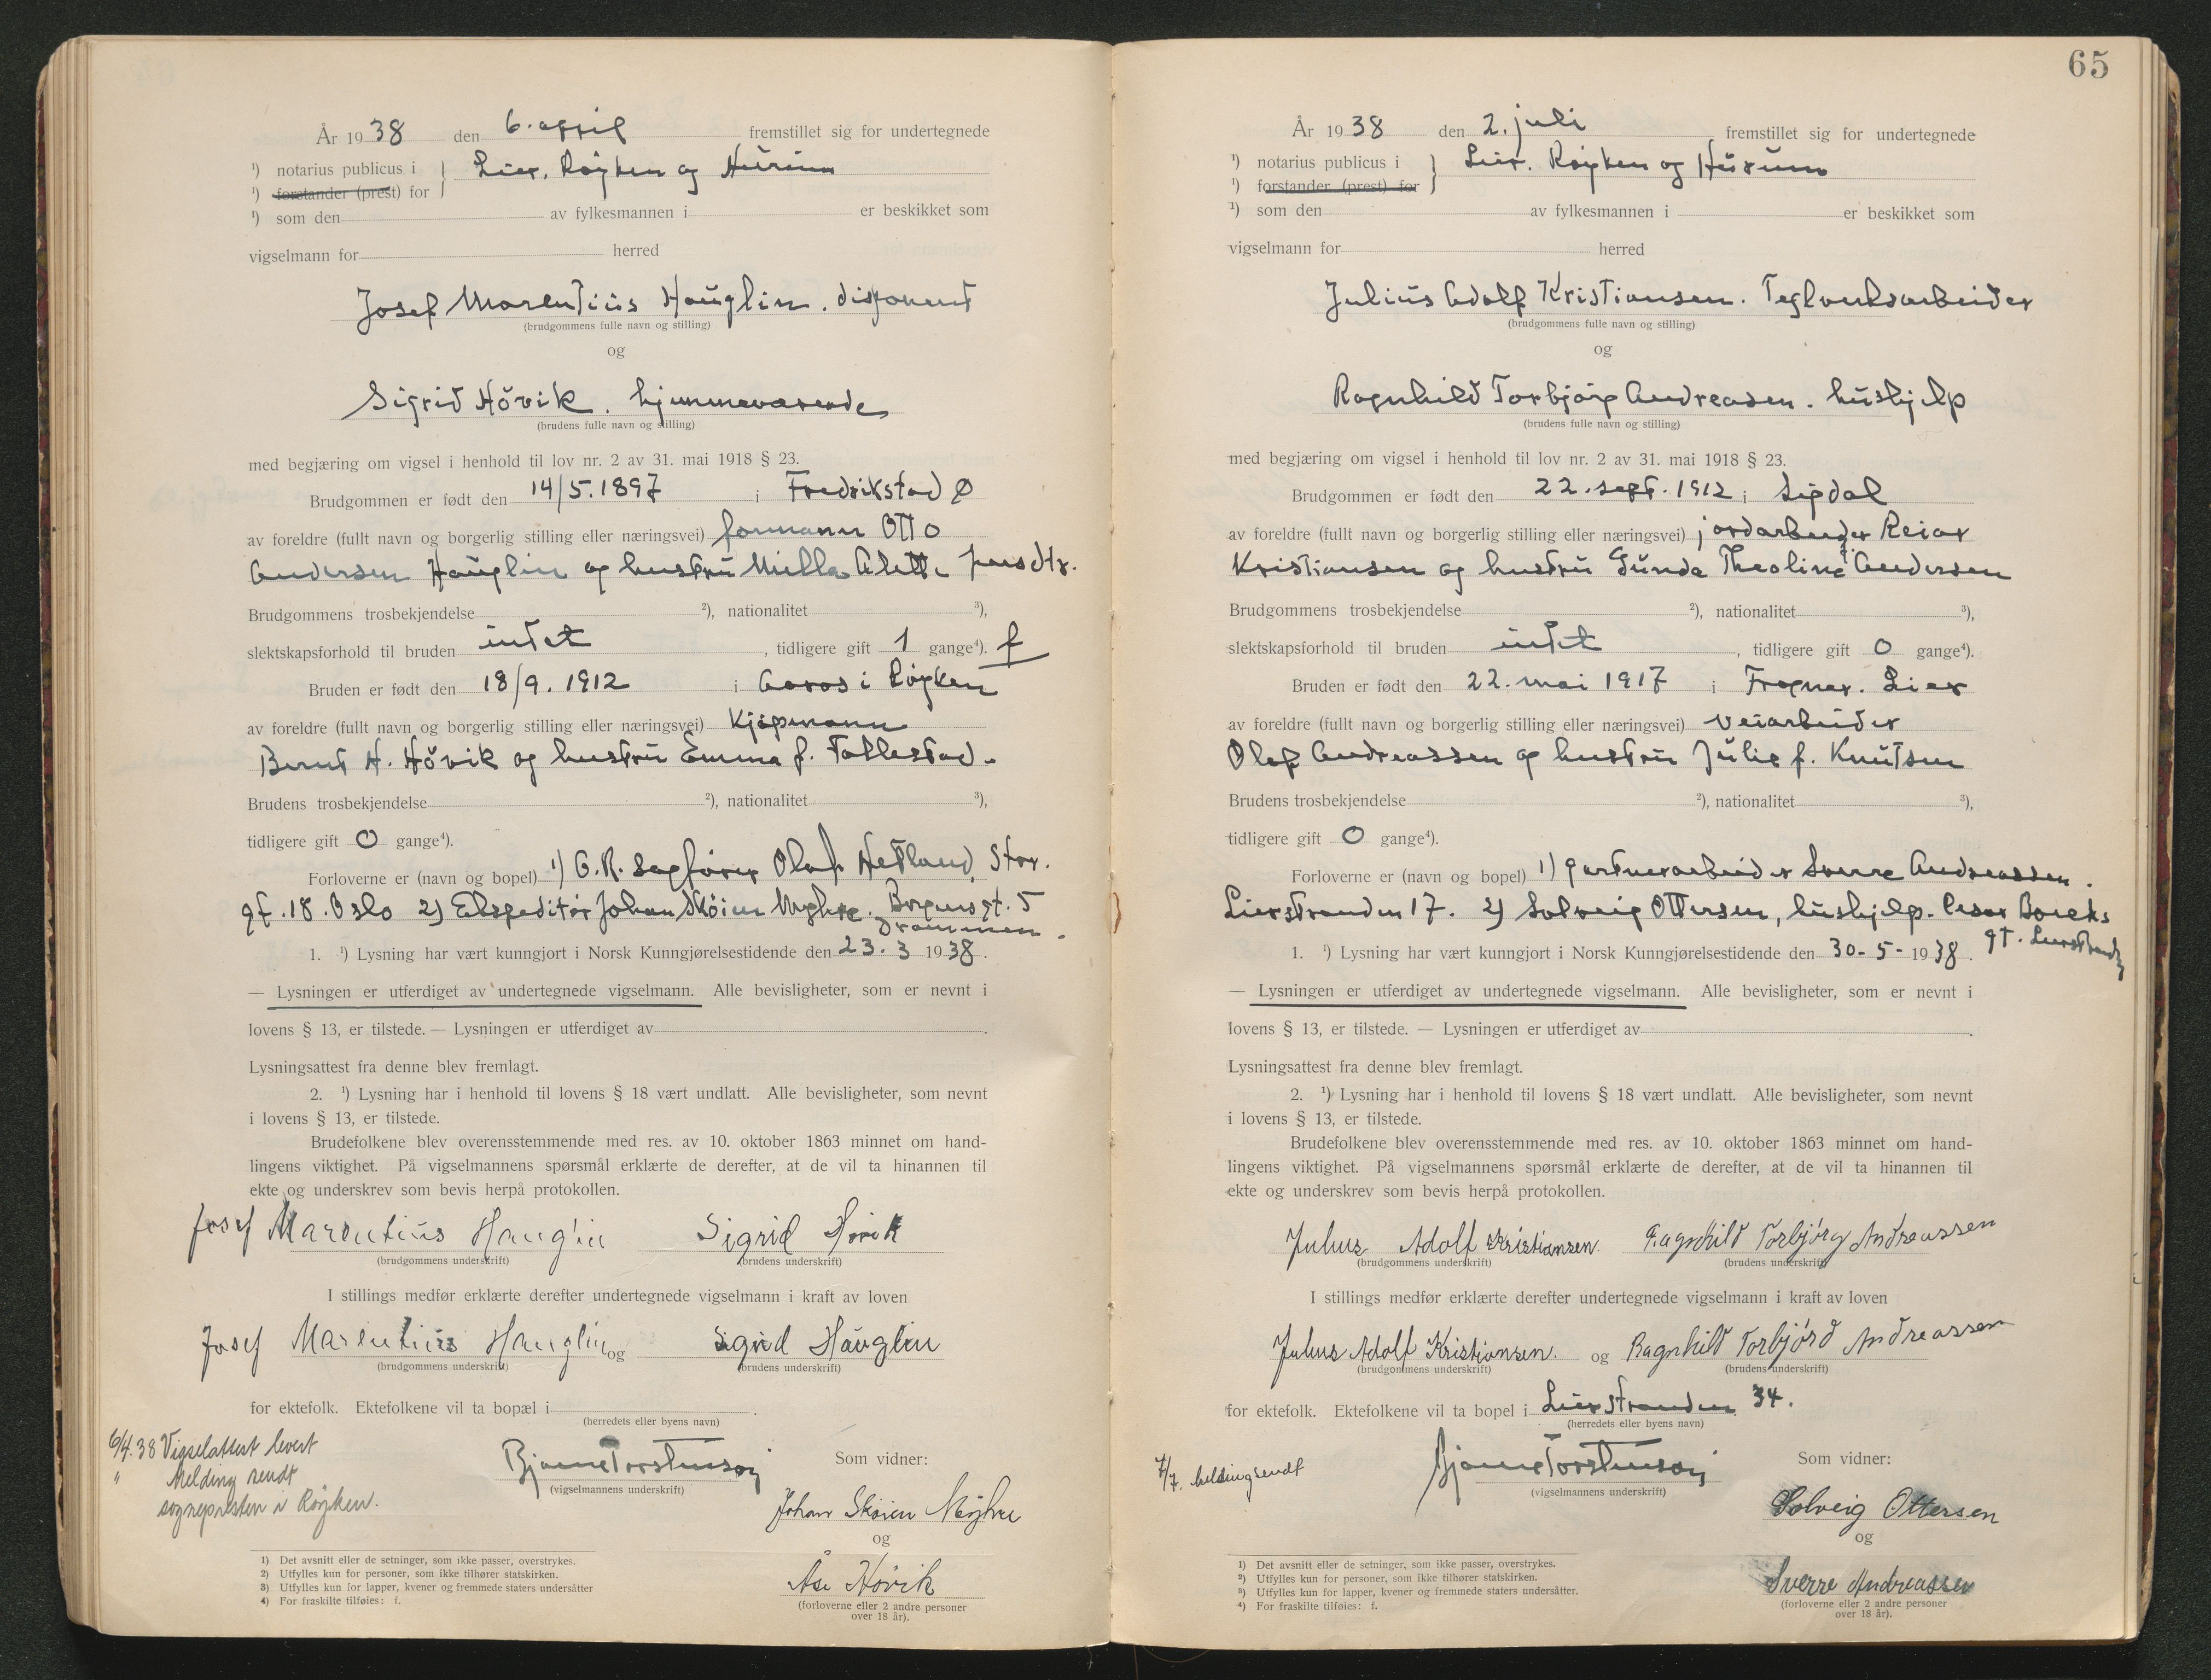 År 1938 den 6. april fremstillet sig for undertegnede
¹) notarius publicus i } Lier, Røyken og Hurum
¹) forstander (prest) for
¹) som den av fylkesmannen i er beskikket som
vigselmann for herred
Josef Marentius Hauglin. disponent
(brudgommens fulle navn og stilling)
og
Sigrid Hövik. hjemmeværende
(brudens fulle navn og stilling)
med begjæring om vigsel i henhold til lov nr. 2 av 31. mai 1918 § 23.
Brudgommen er født den 14/5.1897 i Fredrikstad Ø
av foreldre (fullt navn og borgerlig stilling eller næringsvei) formann Otto
Andersen Hauglin og hustru Milla Alette Jensdtr.
Brudgommens trosbekjendelse ²), nationalitet ³),
slektskapsforhold til bruden intet, tidligere gift 1 gange⁴). f
Bruden er født den 18/9. 1912 i Aaros i Røyken
av foreldre (fullt navn og borgerlig stilling eller næringsvei) Kjøpmann
Bernt H. Hövik og hustru Emma f. Follestad.
Brudens trosbekjendelse ²), nationalitet ³),
tidligere gift 0 gange⁴).
Forloverne er (navn og bopel) 1) O.R. sagfører Olaf Hetland, Stor.
gt. 18. Oslo 2) Ekspeditør Johan Sköien Myhre. Borgensgt. 5
Drammen.
1. ¹) Lysning har vært kunngjort i Norsk Kunngjørelsestidende den 23. 3 1938.
— Lysningen er utferdiget av undertegnede vigselmann. Alle bevisligheter, som er nevnt i
lovens § 13, er tilstede. — Lysningen er utferdiget av .
Lysningsattest fra denne blev fremlagt.
2. ¹) Lysning har i henhold til lovens § 18 vært undlatt. Alle bevisligheter, som nevnt
i lovens § 13, er tilstede.
Brudefolkene blev overensstemmende med res. av 10. oktober 1863 minnet om hand-
lingens viktighet. På vigselmannens spørsmål erklærte de derefter, at de vil ta hinannen til
ekte og underskrev som bevis herpå protokollen.
Josef Marentius Hauglin Sigrid Hövik
(brudgommens underskrift) (brudens underskrift)
I stillings medfør erklærte derefter undertegnede vigselmann i kraft av loven
Josef Marentius Hauglin og Sigrid Hauglin
(brudgommens underskrift) (brudens underskrift)
for ektefolk. Ektefolkene vil ta bopæl i .
(herredets eller byens navn)
6/4.38 Vigselattest levert
" Melding sendt
sognepresten i Røyken.
Bjarne Torstenson
(vigselmannens underskrift)
Som vidner:
Johan Skøien Myhre
og
Åse Hövik
(forloverne eller 2 andre personer
over 18 år).
¹) Det avsnitt eller de setninger, som ikke passer, overstrykes.
²) Utfylles kun for personer, som ikke tilhører statskirken.
³) Utfylles kun for lapper, kvener og fremmede staters undersåtter
⁴) For fraskilte tilføies: f.
65
År 1938 den 2. juli fremstillet sig for undertegnede
¹) notarius publicus i } Lier. Røyken og Hurum
¹) forstander (prest) for
¹) som den av fylkesmannen i er beskikket som
vigselmann for herred
Julius Adolf Kristiansen. Teglverksarbeider
(brudgommens fulle navn og stilling)
og
Ragnhild Torbjørg Andreasen. hushjelp
(brudens fulle navn og stilling)
med begjæring om vigsel i henhold til lov nr. 2 av 31. mai 1918 § 23.
Brudgommen er født den 22. sept. 1912 i Sigdal
av foreldre (fullt navn og borgerlig stilling eller næringsvei) jordarbeider Reiar
Kristiansen og hustru Gunda Theoline Andersen
Brudgommens trosbekjendelse ²), nationalitet ³),
slektskapsforhold til bruden intet, tidligere gift 0 gange⁴).
Bruden er født den 22. mai 1917 i Frogner. Lier
av foreldre (fullt navn og borgerlig stilling eller næringsvei) veiarbeider
Olaf Andreassen og hustru Julie f. Knutsen
Brudens trosbekjendelse ²), nationalitet ³),
tidligere gift 0 gange⁴).
Forloverne er (navn og bopel) 1) gartnerarbeider Sverre Andreassen.
Lierstranden 17. 2) Solveig Ottersen, hushjelp.
gt. Lierstranden
1. ¹) Lysning har vært kunngjort i Norsk Kunngjørelsestidende den 30-5-1938.
— Lysningen er utferdiget av undertegnede vigselmann. Alle bevisligheter, som er nevnt i
lovens § 13, er tilstede. — Lysningen er utferdiget av .
Lysningsattest fra denne blev fremlagt.
2. ¹) Lysning har i henhold til lovens § 18 vært undlatt. Alle bevisligheter, som nevnt
i lovens § 13, er tilstede.
Brudefolkene blev overensstemmende med res. av 10. oktober 1863 minnet om hand-
lingens viktighet. På vigselmannens spørsmål erklærte de derefter, at de vil ta hinannen til
ekte og underskrev som bevis herpå protokollen.
Julius Adolf Kristiansen. Ragnhild Torbjørg Andreassen
(brudgommens underskrift) (brudens underskrift)
I stillings medfør erklærte derefter undertegnede vigselmann i kraft av loven
Julius Adolf Kristiansen. og Ragnhild Torbjørd Andreassen
(brudgommens underskrift) (brudens underskrift)
for ektefolk. Ektefolkene vil ta bopel i Lierstranden 34.
(herredets eller byens navn)
7/7. melding sendt
Bjarne Torstenson
(vigselmannens underskrift)
Som vidner:
Solveig Ottersen
og
Sverre Andreassen
(forloverne eller 2 andre personer
over 18 år).
¹) Det avsnitt eller de setninger, som ikke passer, overstrykes.
²) Utfylles kun for personer, som ikke tilhører statskirken.
³) Utfylles kun for lapper, kvener og fremmede staters undersåtter.
⁴) For fraskilte tilføies: f.